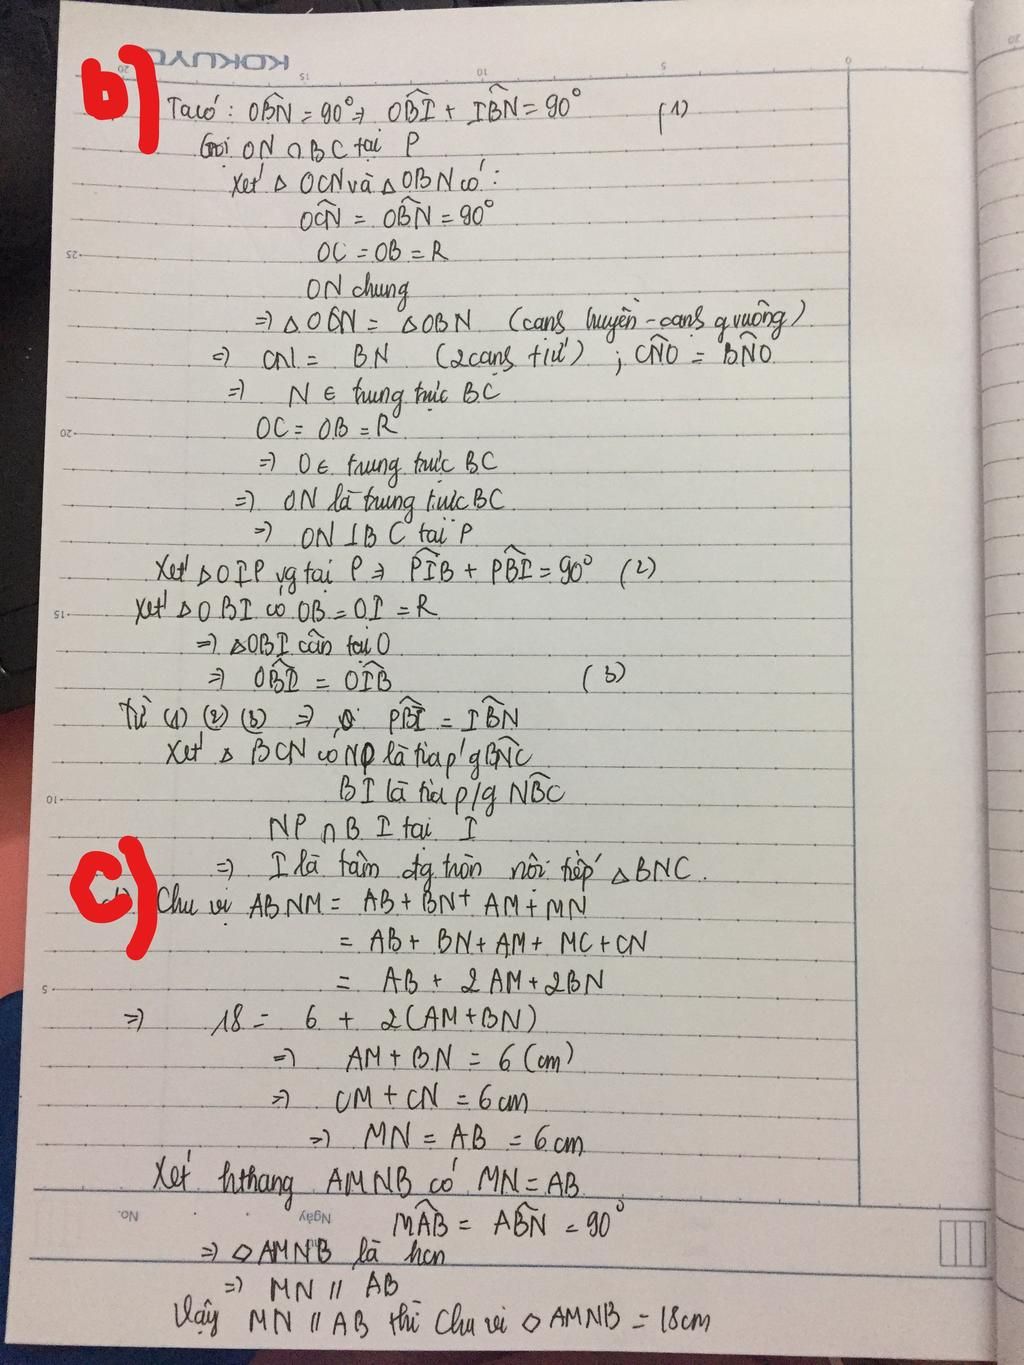 KOKUYO
20 15 10 5 0
b)
Ta có: OB̂N = 90° => OB̂I + IB̂N = 90° (1)
Gọi ON ∩ BC tại P
Xét △ OCN và △ OBN có:
OĈN = OB̂N = 90°
25
OC = OB = R
ON chung
=> △OCN = △OBN (cạnh huyền - cạnh g vuông)
=> CN = BN (2 cạnh t/ư) ; CN̂O = BN̂O
=> N ∈ trung trực BC
20
OC = OB = R
=> O ∈ trung trực BC
=> ON là trung trực BC
=> ON ⊥ BC tại P
Xét △OIP vg tại P => PÎB + PB̂I = 90° (2)
15
Xét △OBI có OB = OI = R
=> △OBI cân tại O
=> OB̂I = OÎB (3)
Từ (1) (2) (3) => PB̂I = IB̂N
Xét △ BCN có NP là tia p/g BN̂C
10
BI là tia p/g NB̂C
NP ∩ BI tại I
=> I là tâm đg tròn nội tiếp △BNC.
c)
Chu vi ABNM = AB + BN + AM + MN
= AB + BN + AM + MC + CN
5
= AB + 2AM + 2BN
=> 18 = 6 + 2(AM + BN)
=> AM + BN = 6 (cm)
=> CM + CN = 6 cm
=> MN = AB = 6 cm
Xét hthang AMNB có MN = AB
No. Ngày
MÂB = AB̂N = 90°
=> ◇ AMNB là hcn
=> MN // AB
Vậy MN // AB thì chu vi ◇ AMNB = 18cm